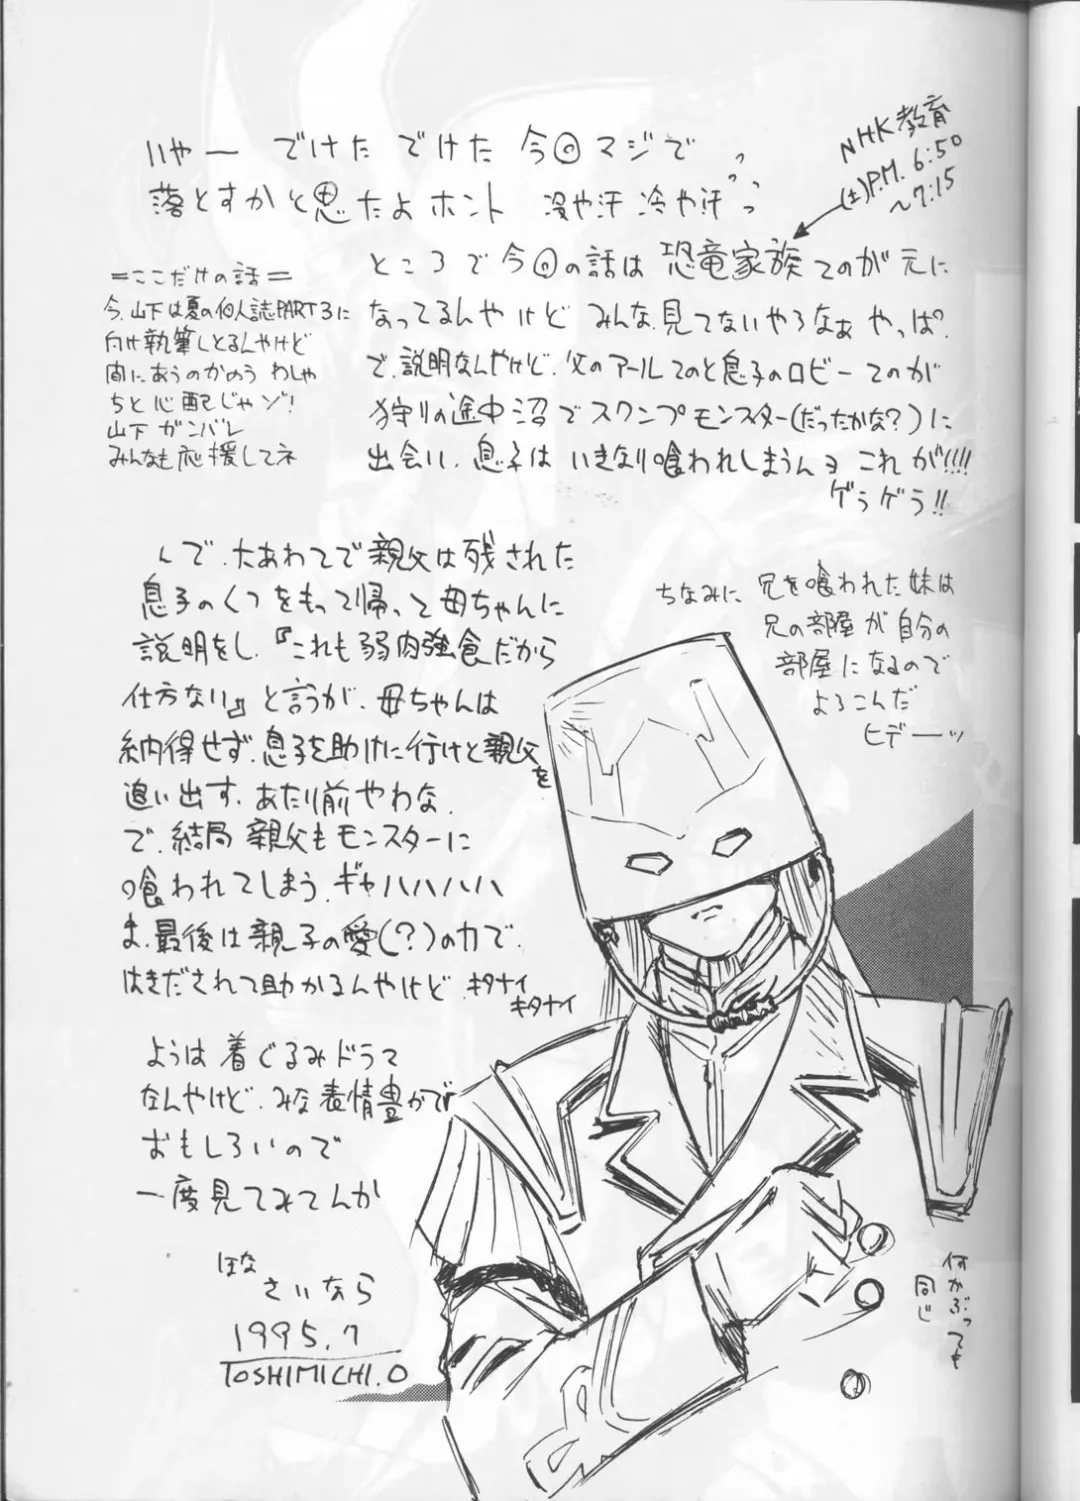 いやー でけた でけた 今回マジで
落とすかと思たよホント 没や汗 冷や汗
NHK教育
(土)P.M. 6:50
〜7:15
ところで今回の話は 恐竜家族 てのが元に
なってるんやけど みんな見てないやろなぁ やっぱ?
で、説明なんやけど、父のアールてのと息子のロビーてのが
狩りの途中沼でスワンプモンスター(だったかな?)に
出会い、息子は いきなり喰われしまうんョ これが!!!!
ゲラゲラ!!
=ここだけの話=
今、山下は夏の個人誌PART3に
向け執筆しとるんやけど
間にあうのかのう わしゃ
ちと心配じゃゾ!
山下 ガンバレ
みんなも応援してネ
んで、大あわてで親父は残された
息子のくつをもって帰って母ちゃんに
説明をし、『これも弱肉強食だから
仕方ない』と言うが、母ちゃんは
納得せず、息子を助けに行けと親父を
追い出す、あたり前やわな、
で、結局 親父もモンスターに
喰われてしまう、ギャハハハハ
ま、最後は親子の愛(?)の力で、
はきだされて助かるんやけど、キタナイ
キタナイ
ちなみに、兄を喰われた妹は
兄の部屋が自分の
部屋になるので
よろこんだ
ヒデーッ
ようは着ぐるみドラマ
なんやけど、みな表情豊かで
おもしろいので
一度見てみてんか
ほな
さいなら
1995.7
TOSHIMICHI.O
何かぶっても
同じ